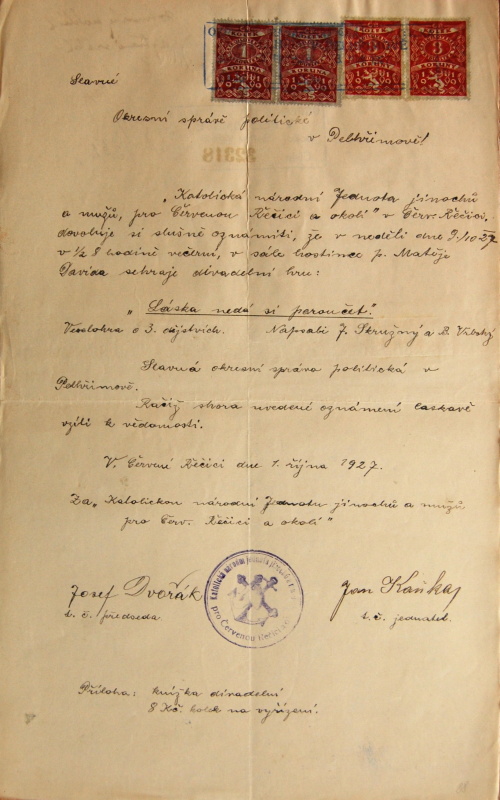 KOLEK KOLEK KOLEK KOLEK
1 1 3 3
KORUNA KORUNA KORUNY KORUNY
Slavné
Okresní správě politické
v Pelhřimově!
22318
„Katolická národní Jednota jinochů
a mužů, pro Červenou Řečici a okolí" v Červ. Řečici,
dovoluje si slušně oznámiti, že v neděli dne 9./10.27
v ½ 8 hodině večerní, v sále hostince p. Matěje
Davida sehraje divadelní hru:
„Láska nedá si poroučet".
Veselohra o 3. dějstvích. Napsali J. Skružný a B.
Slavná okresní správa politická v
Pelhřimově.
Račiž shora uvedené oznámení laskavě
vzíti k vědomosti.
V. Červené Řečici dne 1. října 1927.
Za „Katolickou národní Jednotu jinochů a mužů
pro Červ. Řečici a okolí"
Josef Dvořák
t. č. předseda
Katolická národní jednota
pro Červenou Řečici
Jan Kaňka
t. č. jednatel.
Příloha: knížka divadelní
8 Kč. kolek na vyřízení.